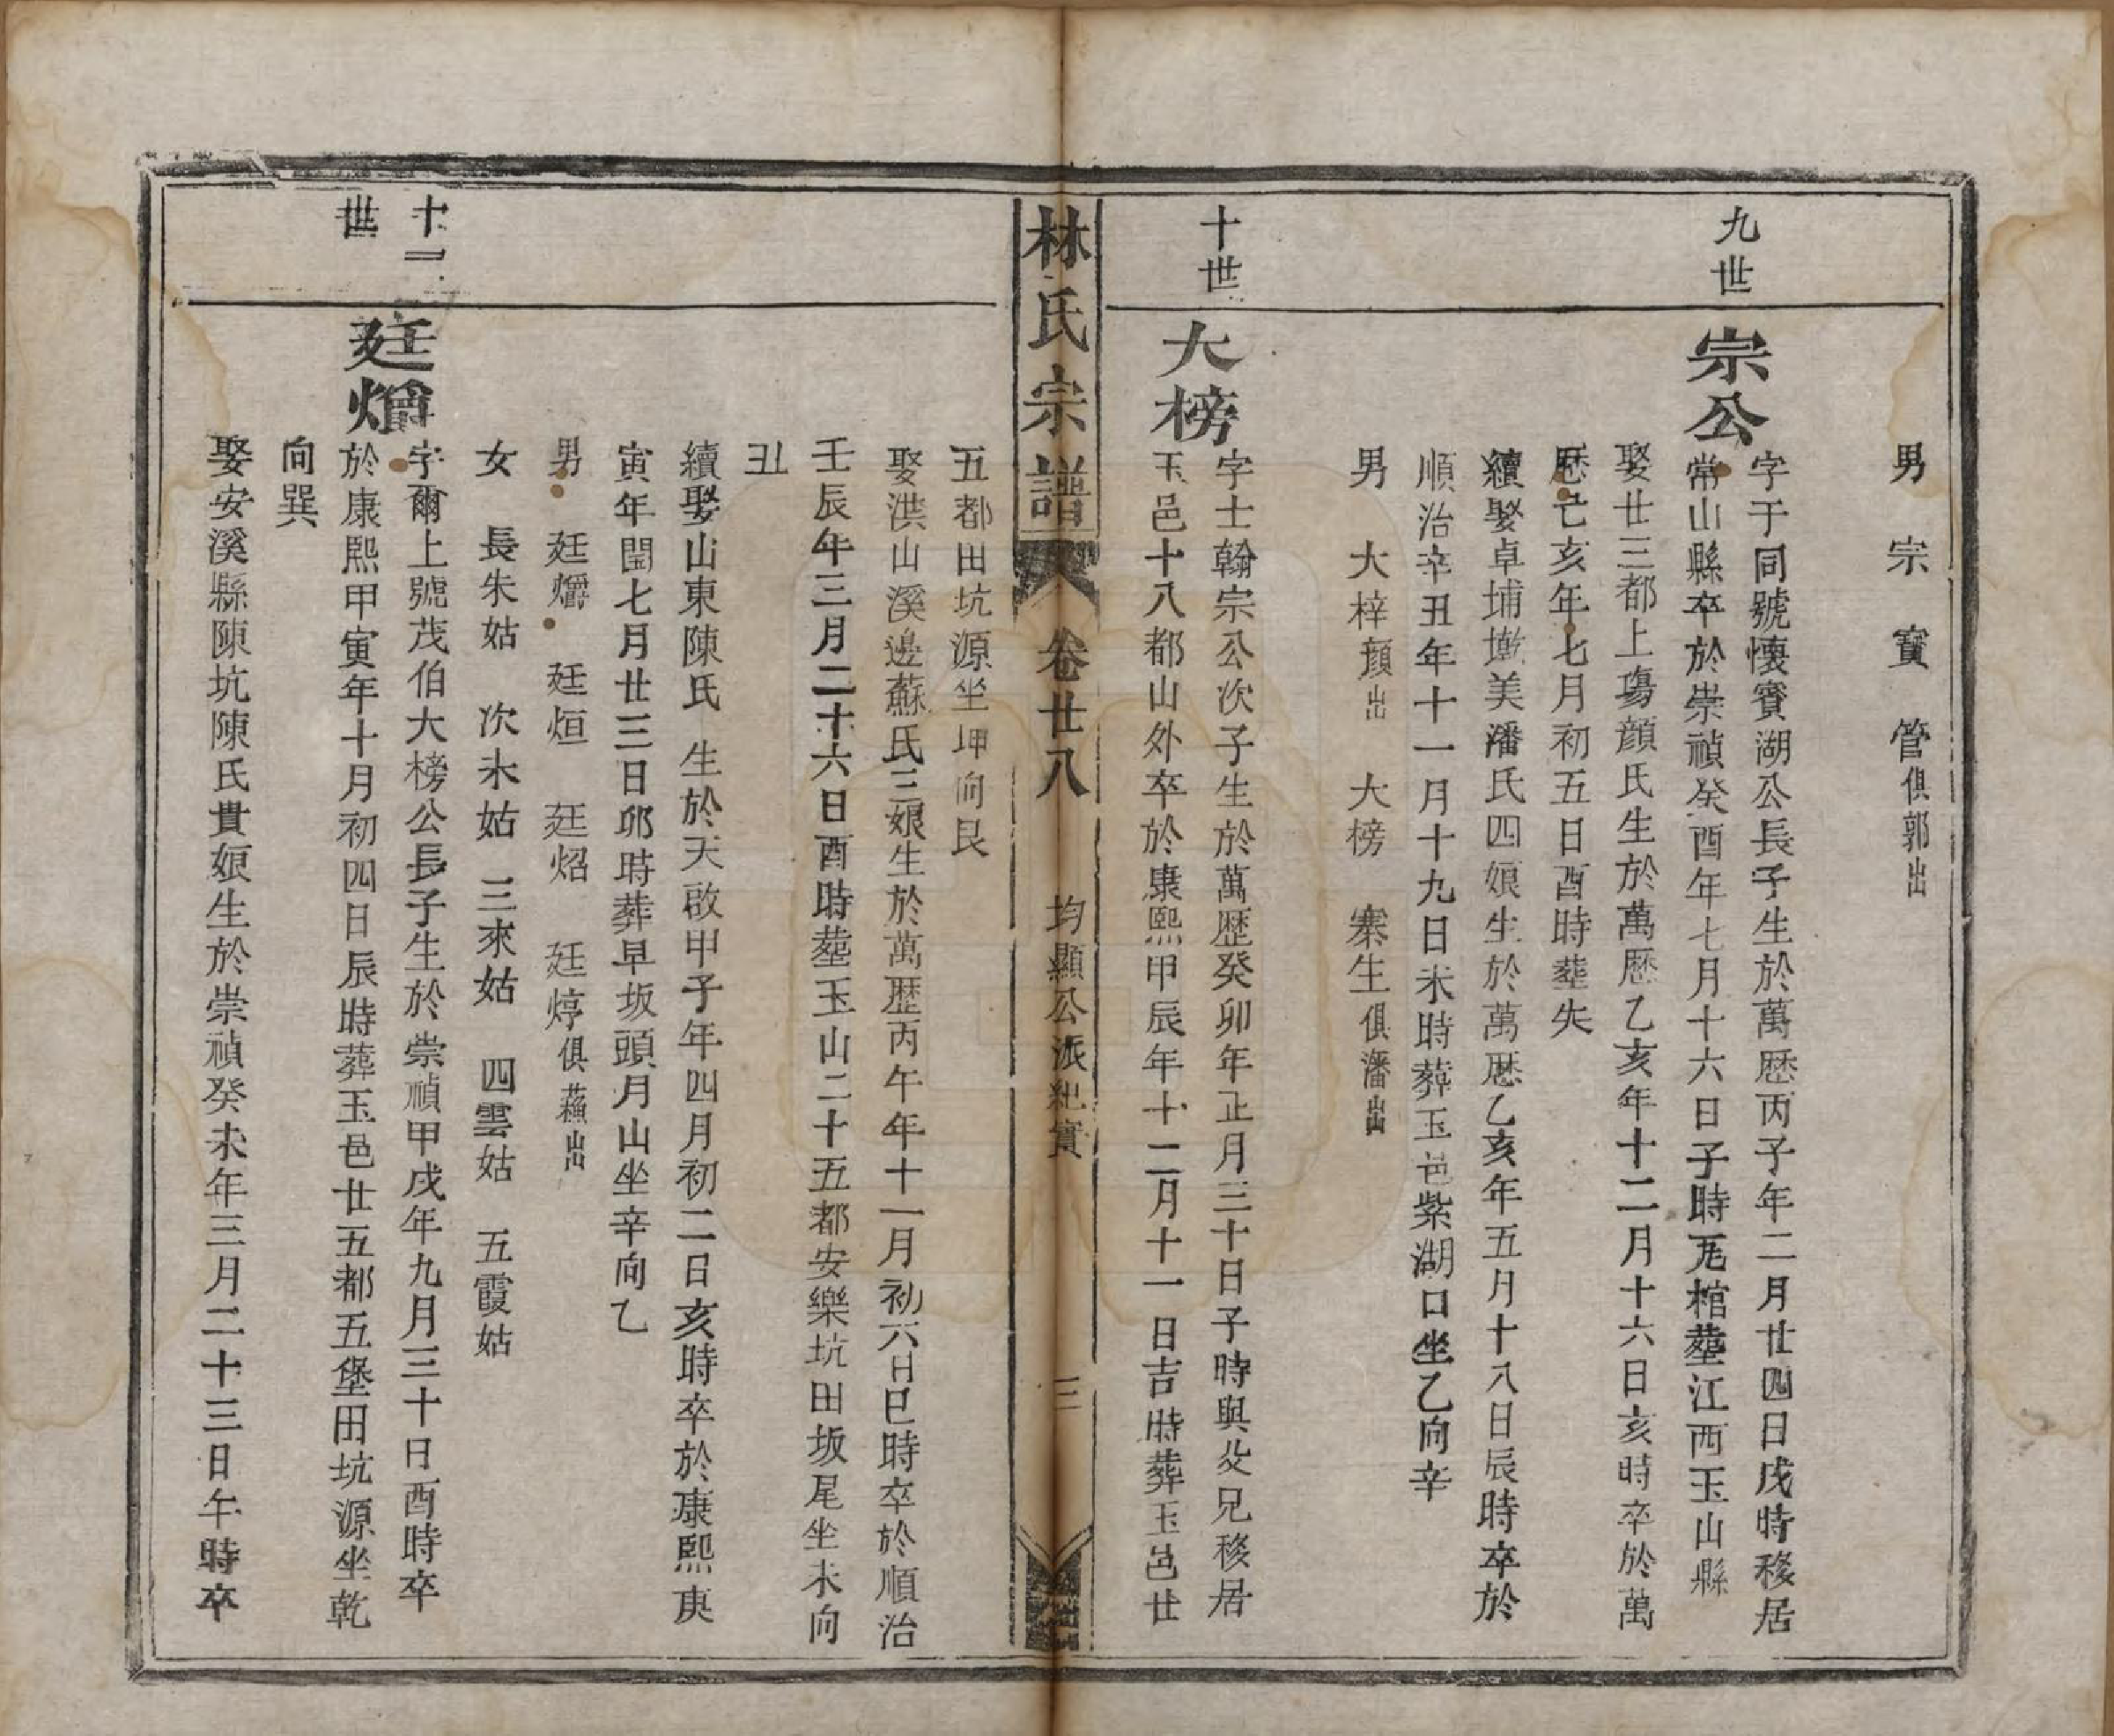 男 宗 寶 管俱郭出
九世
宗公
字于同號懷賓湖公長子生於萬歷丙子年二月廿四日戌時移居
常山縣卒於崇禎癸酉年七月十六日子時旡棺塟江西玉山縣
娶廿三都上塲顔氏生於萬歷乙亥年十二月十六日亥時卒於萬
歷亡亥年七月初五日酉時塟失
續娶卓埔墘美潘氏四娘生於萬歷乙亥年五月十八日辰時卒於
順治辛丑年十一月十九日未時葬玉邑紫湖口坐乙向辛
男 大梓顔出 大榜 寨生俱潘出
十世
大榜
字士翰宗公次子生於萬歷癸卯年正月三十日子時與父兄移居
玉邑十八都山外卒於康熙甲辰年十二月十一日吉時葬玉邑廿
林氏宗譜 卷廿八 均顯公派紀實 三
五都田坑源坐坤向艮
娶洪山溪邊蘇氏三娘生於萬歷丙午年十一月初六日巳時卒於順治
壬辰年三月二十六日酉時塟玉山二十五都安樂坑田坂尾坐未向
丑
續娶山東陳氏 生於天啟甲子年四月初二日亥時卒於康熙庚
寅年閏七月廿三日卯時葬早坂頭月山坐辛向乙
男 廷爝 廷烜 廷炤 廷焞俱蘇出
女 長朱姑 次未姑 三來姑 四雲姑 五霞姑
十一世
廷爝
字爾上號茂伯大榜公長子生於崇禎甲戌年九月三十日酉時卒
於康熙甲寅年十月初四日辰時葬玉邑廿五都五堡田坑源坐乾
向巽
娶安溪縣陳坑陳氏貴娘生於崇禎癸未年三月二十三日午時卒